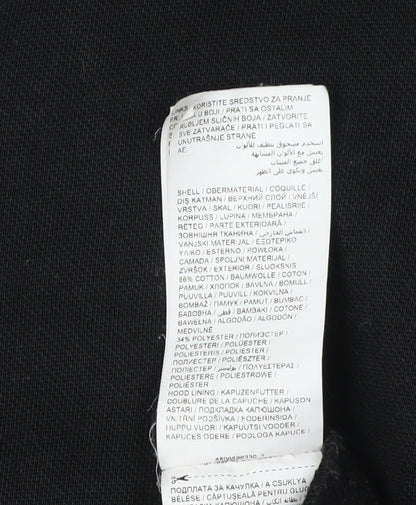 KORISTITE SREDSTVO ZA PRANJE
U BOJI / PRATI SA OSTALIM
RUBLJEM SLIČNIH BOJA / ZATVORITE
SVE ZATVARAČE / PRATI I PEGLATI SA
UNUTRAŠNJE STRANE
AE:
استخدم مسحوق تنظيف للألوان
يغسل مع الألوان المشابهة
اغلق جميع
يغسل ويكوى على الظهر
SHELL / OBERMATERIAL / COQUILLE /
DIŞ KATMAN / ВЕРХНИЙ СЛОЙ / VNĚJŠÍ
VRSTVA / SKAL / KUORI / REALISIRIE /
KORPUSS / LUPINA / МЕМБРАНА /
RÉTEG / PARTE EXTERIORĂ /
ЗОВНІШНЯ ТКАНИНА / القماش الخارجي /
VANJSKI MATERIJAL / ΕΞΩΤΕΡΙΚΟ
ΥΛΙΚΟ / ESTERNO / POWŁOKA /
CAMADA / SPOLJNI MATERIJAL /
ZVRŠOK / EXTERIOR / SLUOKSNIS
66% COTTON / BAUMWOLLE / COTON /
PAMUK / ХЛОПОК / BAVLNA / BOMULL /
PUUVILLA / PUUVILL / KOKVILNA /
BOMBAŽ / ПАМУК / PAMUT / BUMBAC /
БАВОВНА / قطن / ΒΑΜΒΑΚΙ / COTONE /
BAWEŁNA / ALGODÃO / ALGODÓN /
MEDVILNĖ
34% POLYESTER / ПОЛИЭСТЕР /
POLYESTERI / POLÜESTER /
POLIESTERIS / POLIESTER /
ПОЛИЕСТЕР / POLIÉSZTER /
ПОЛІЕСТЕР / بوليستر / ΠΟΛΥΕΣΤΕΡΑΣ /
POLIESTERE / POLIESTROWE /
POLIÉSTER
HOOD LINING / KAPUZENFUTTER /
DOUBLURE DE LA CAPUCHE / KAPUŞON
ASTARI / ПОДКЛАДКА КАПЮШОНА /
VNITŘNÍ PODŠÍVKA / FODERINSIDA /
HUPPU VUORI / KAPUUTSI VOODER /
KAPUCES ODERE / PODLOGA KAPUCE /
ПОДПЛАТА ЗА КАЧУЛКА / A CSUKLYA
BÉLÉSE / CĂPTUŞEALĂ PENTRU GLUG